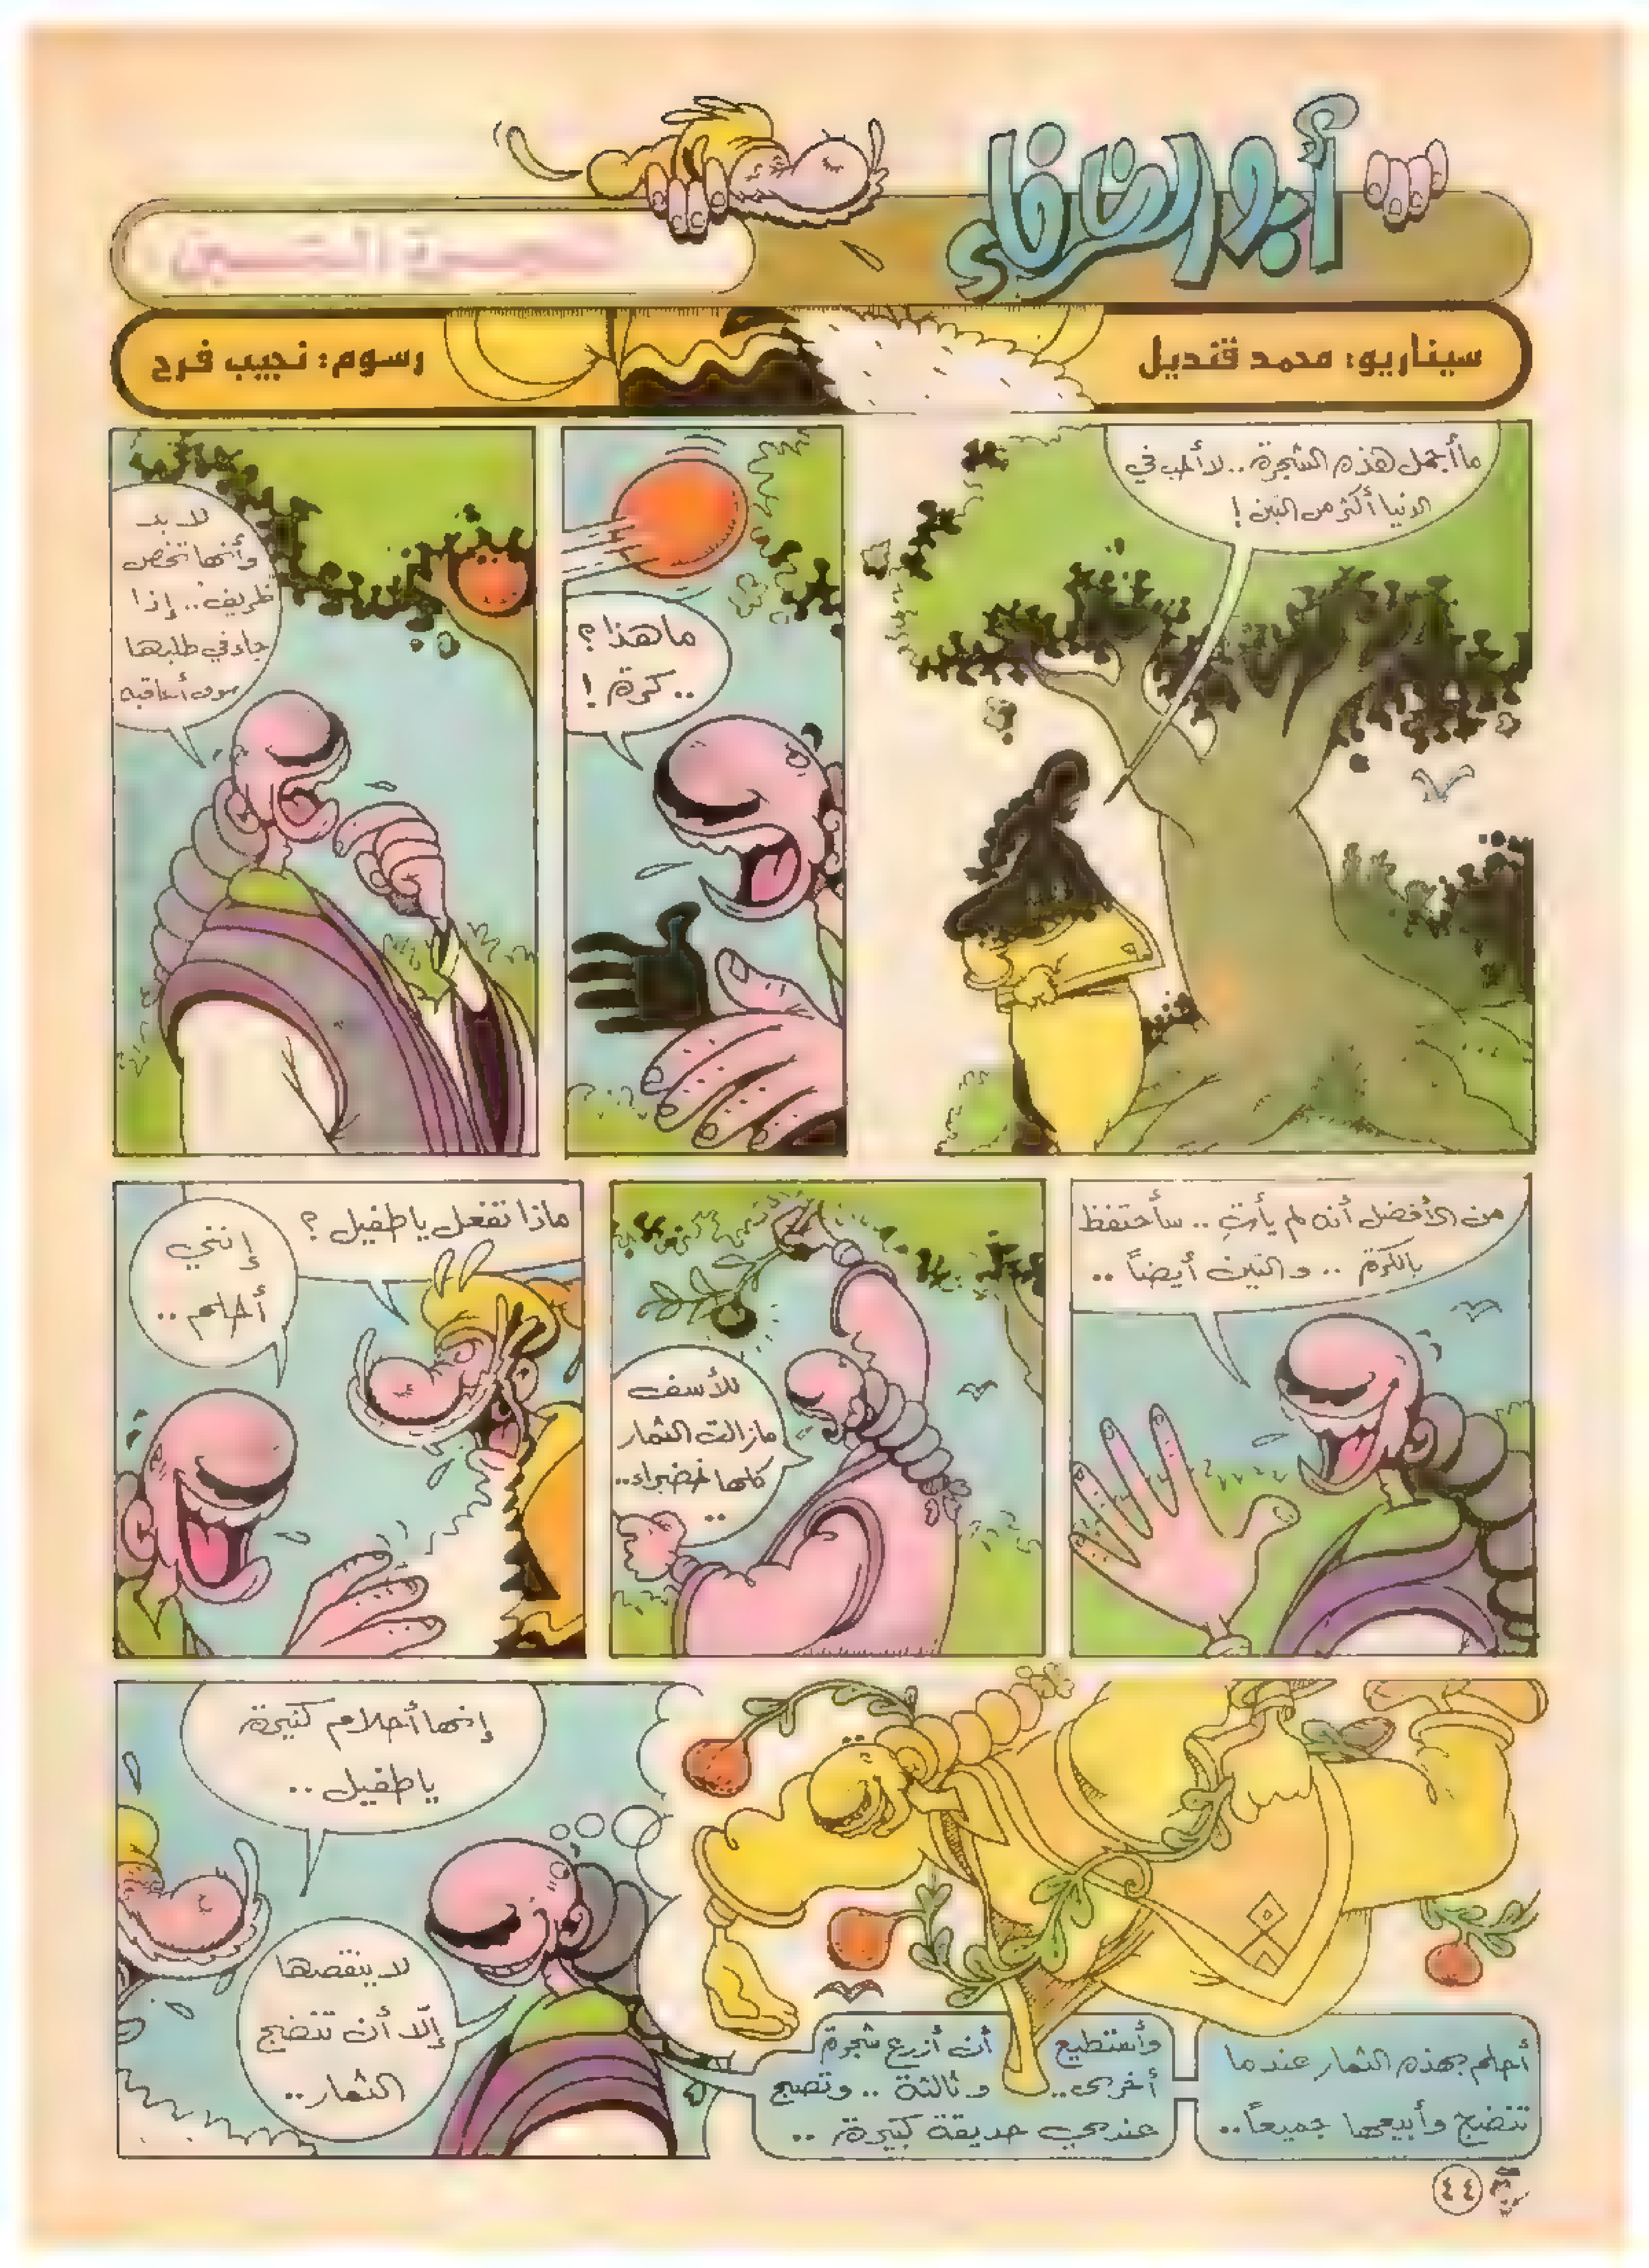 أبو الظرفاء
شجرة التين
سيناريو: محمد قنديل
رسوم: نجيب فرح
ما أجمل هذه الشجرة.. لا أحب في
الدنيا أكثر من التين!
ما هذا؟
.. كرة!
لا بد
وأنها تخص
ظريف.. إذا
جاء في طلبها
سوف أعاقبه
من الأفضل أنه لم يأتِ.. سأحتفظ
بالكرة.. والتين أيضاً..
للأسف
مازالت الثمار
كلها خضراء..
..
ماذا تفعل يا طفيل؟
إنني
أحلم..
أحلم بهذه الثمار عندما
تنضج وأبيعها جميعاً..
وأستطيع أن أزرع شجرة
أخرى.. وثالثة.. وتصبح
عندي حديقة كبيرة..
إنها أحلام كثيرة
يا طفيل..
لا ينقصها
إلّا أن تنضج
الثمار..
٤٤